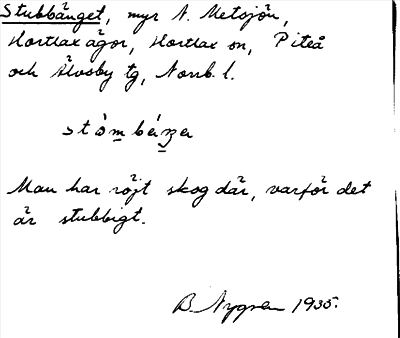 Stubbänget, myr N. Metsjön,
Hortlax ägor, Hortlax sn, Piteå
och Älvsby tg, Norrb. l.
Man har röjt skog där, varför det
är stubbigt.
B. Nygren 1935.